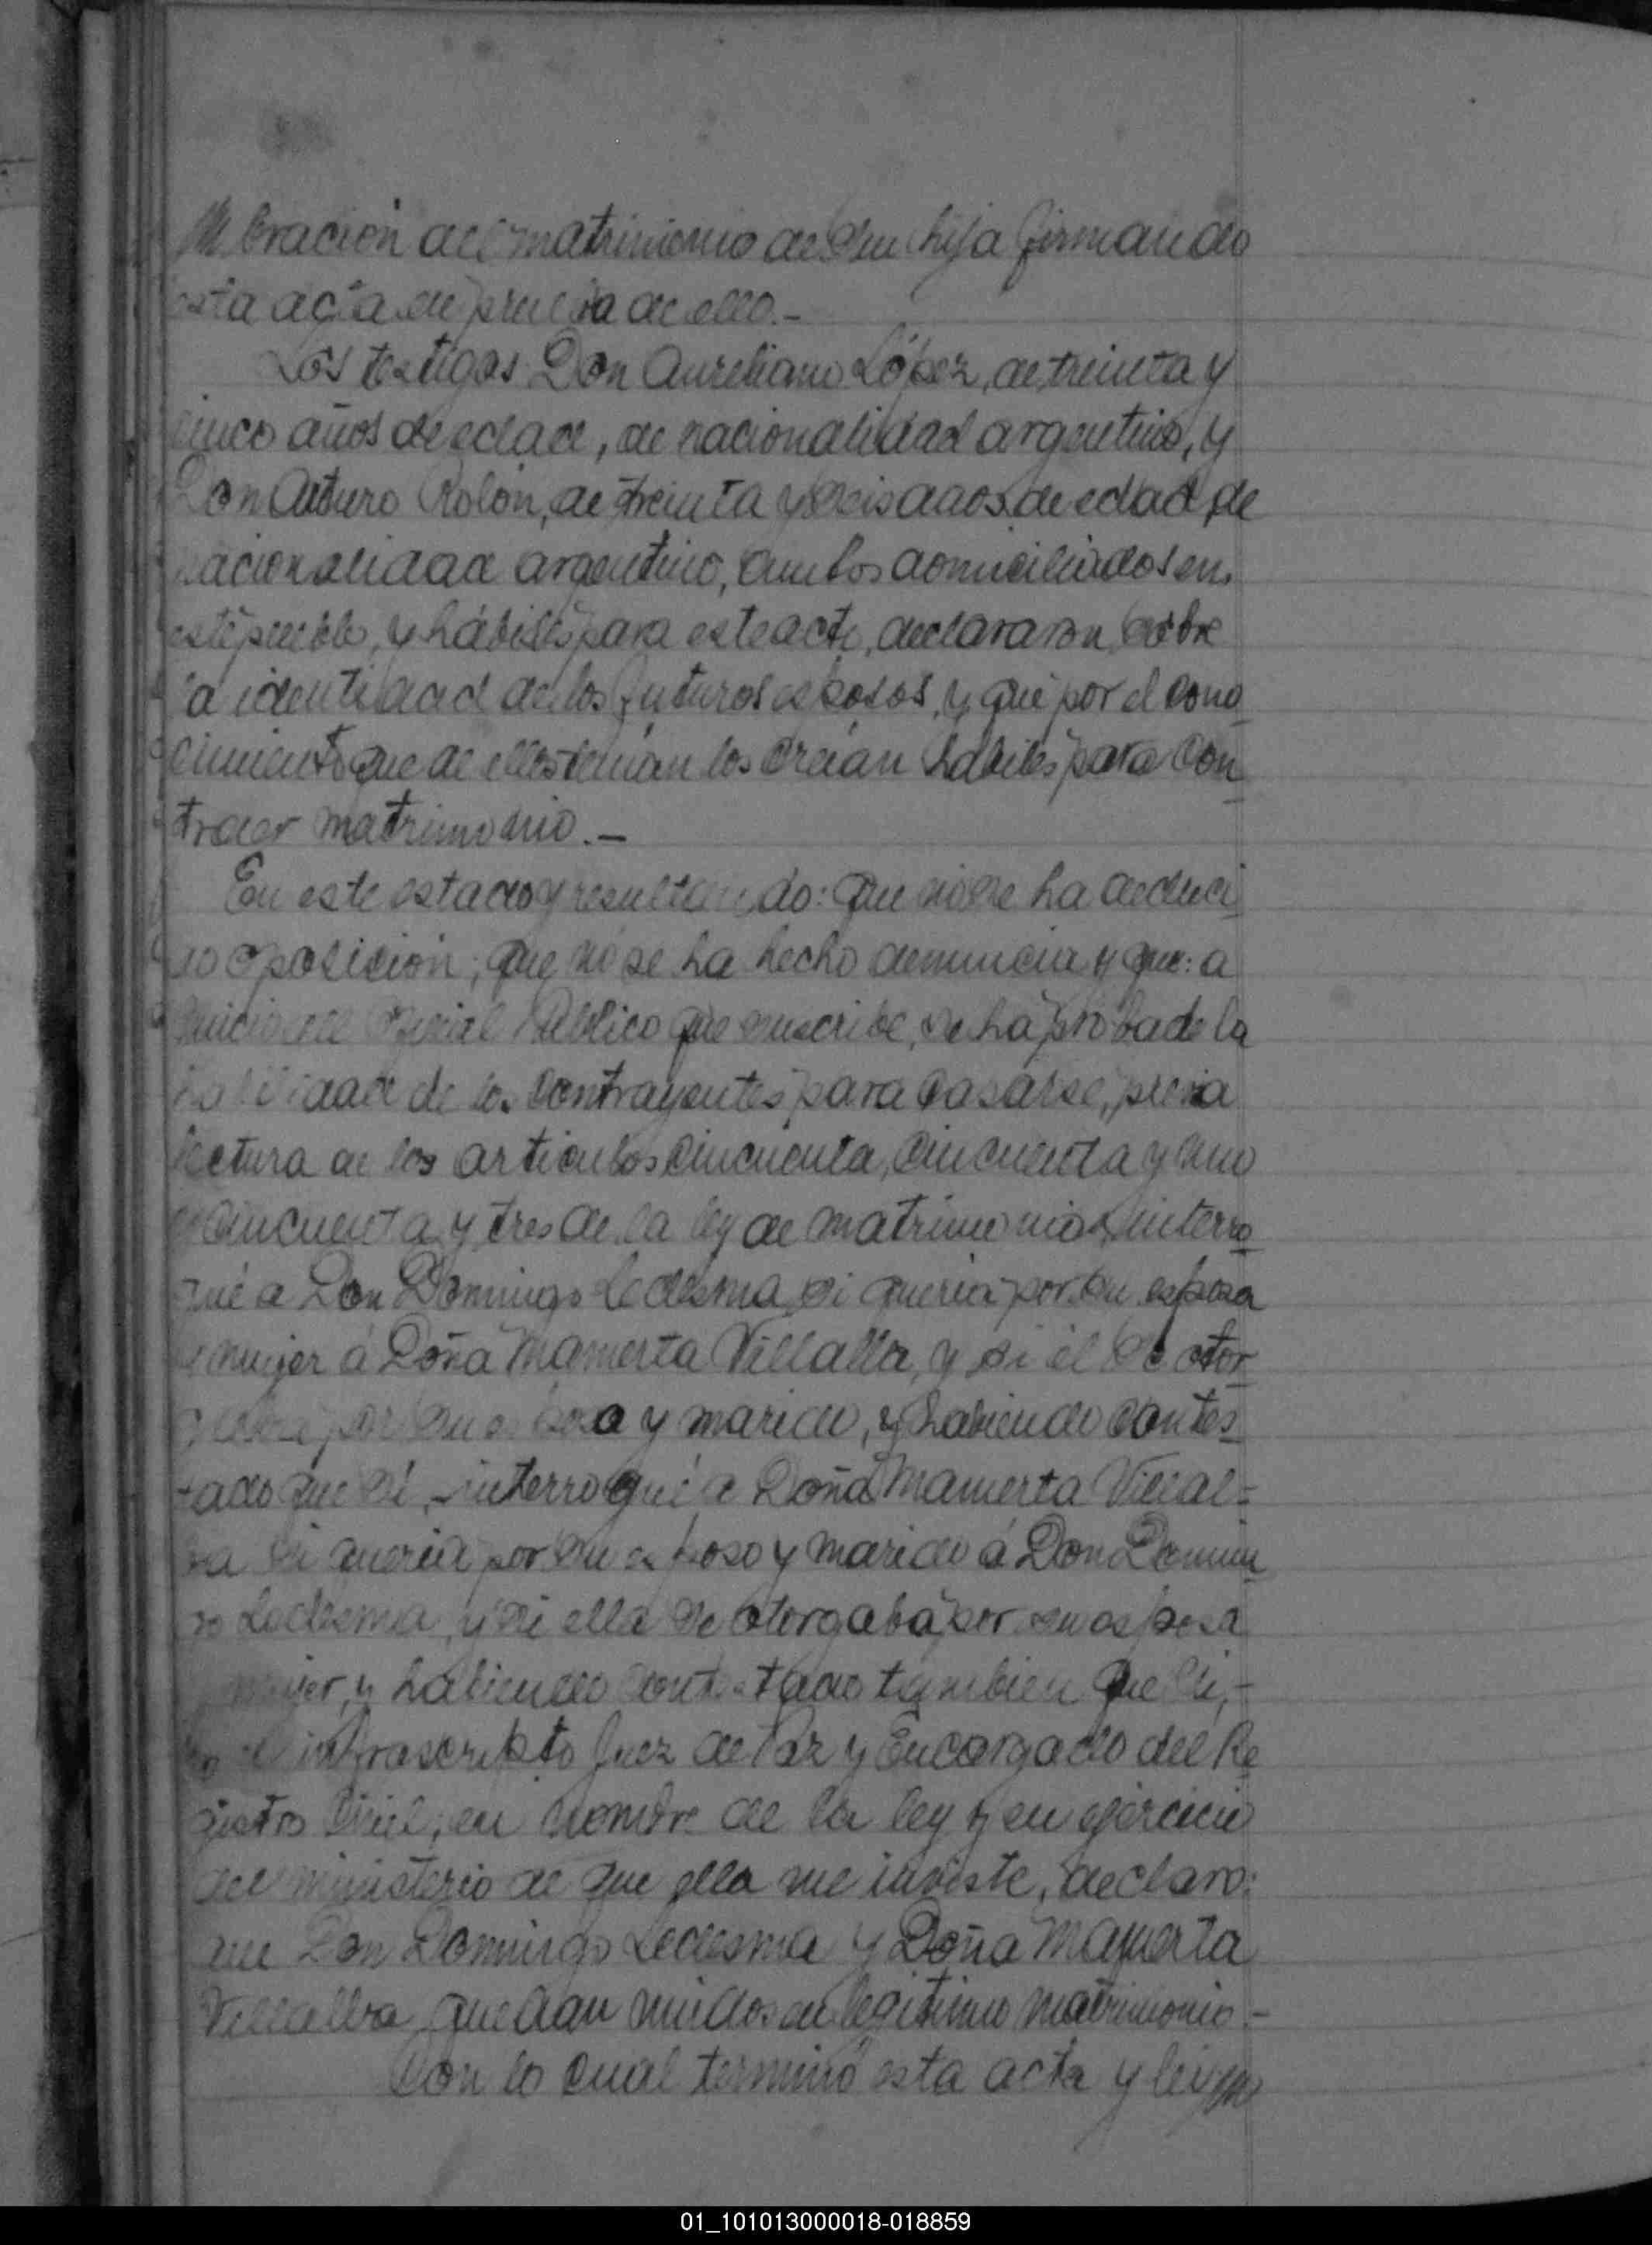 lebracion del matrimonio de su hija firmando
esta acta en prueba de ello.-
Los testigos Don Aureliano López, de treinta y
cinco años de edad, de nacionalidad argentino, y
Don Arturo Rolón, de treinta y seis años de edad, de
nacionalidad argentino, ambos domiciliados en
este pueblo, y hábiles para este acto, declararon sobre
la identidad de los futuros esposos, y que por el cono
cimiento que de ellos tenían los creían hábiles para con
traer matrimonio.-
En este estado y resultando: que no se ha deduci
do oposición; que no se ha hecho denuncia y que: a
juicio del Oficial Público que suscribe, se ha probado la
habilidad de los contrayentes para casarse, previa
lectura de los articulos cincuenta, cincuenta y uno
y cincuenta y tres de la ley de matrimonio, interro
gué a Don Domingo Ledesma, si queria por su esposa
y mujer á Doña Mamerta Villalba, y si él se otor
gaba por su esposo y marido, y habiendo contes
tado que sí, interrogué a Doña Mamerta Villal=
ba si queria por su esposo y marido á Don Domin
go Ledesma, y si ella se otorgaba por su esposa
y mujer, y habiendo contestado tambien que si,-
yo el infrascripto Juez de Paz y Encargado del Re
gistro Civil, en nombre de la ley y en ejercicio
del ministerio de que ella me inviste, declaro:
que Don Domingo Ledesma y Doña Mamerta
Villalba quedan unidos en legitimo matrimonio.-
Con lo cual terminó esta acta y leyen
01_101013000018-018859